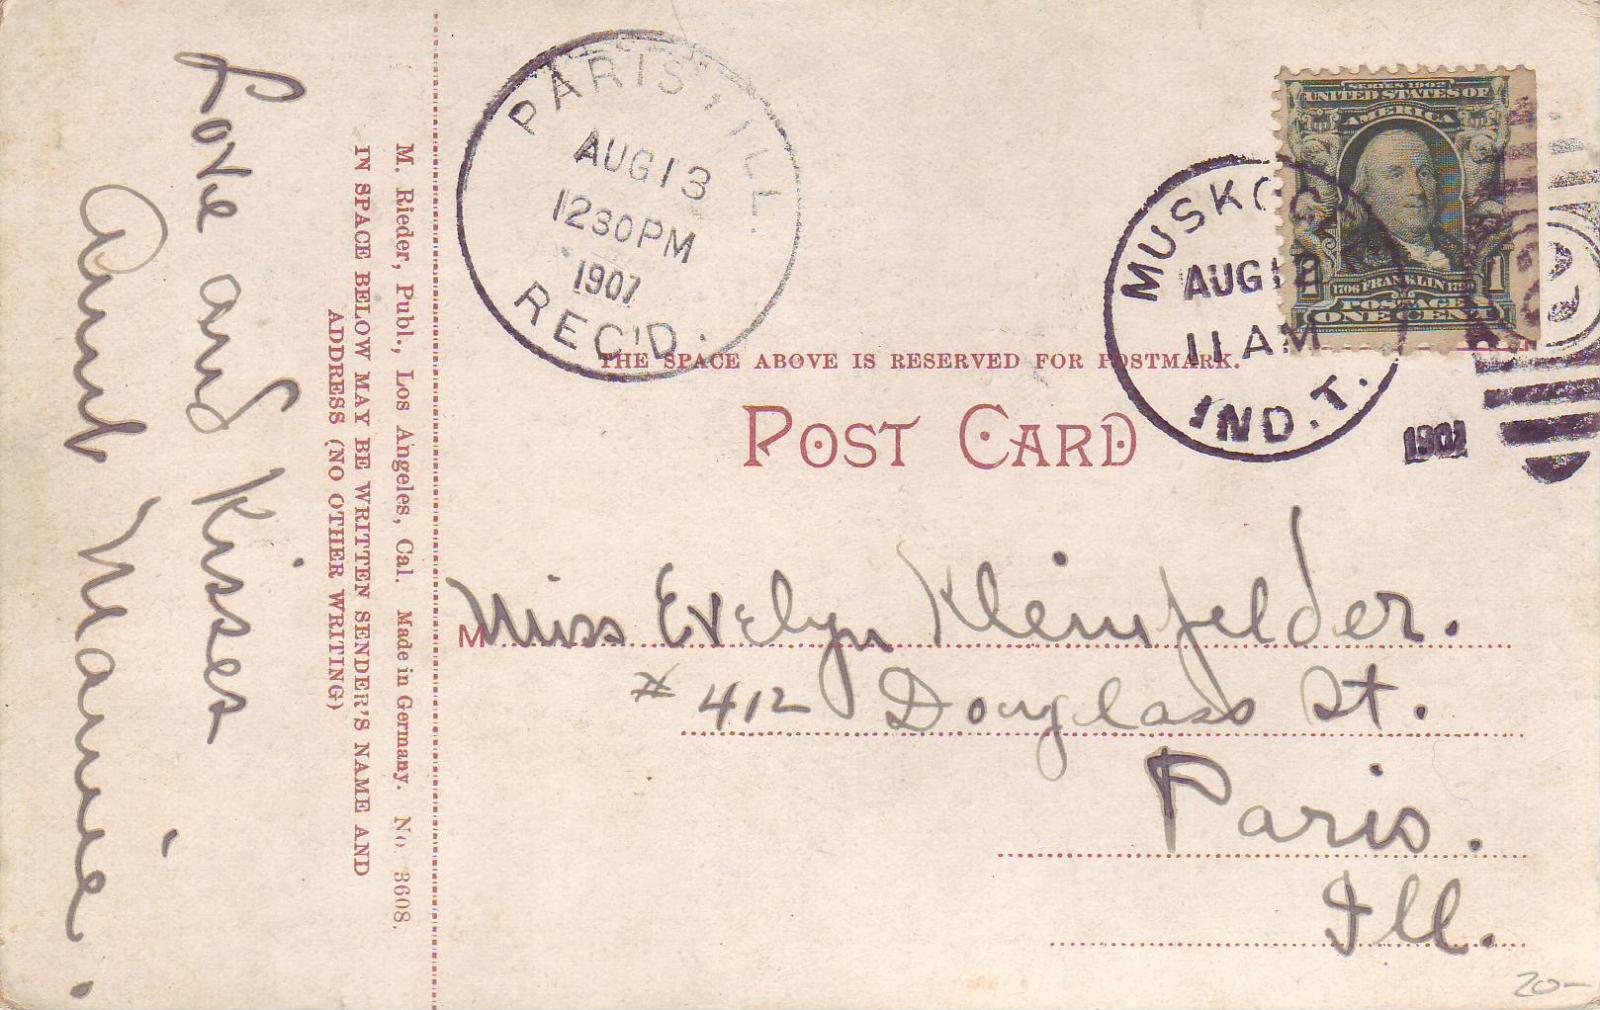 Love and Kisses
Aunt Mamie.
M. Rieder, Publ., Los Angeles, Cal. Made in Germany. No. 3608.
IN SPACE BELOW MAY BE WRITTEN SENDER'S NAME AND
ADDRESS (NO OTHER WRITING)
PARIS, ILL.
AUG 13
1230PM
1907
REC'D.
SERIES 1902
UNITED STATES OF
AMERICA
1706 FRANKLIN
POSTAGE
ONE CENT
1
MUSKOGEE
AUG 12
11 AM
IND. T.
1907
THE SPACE ABOVE IS RESERVED FOR POSTMARK.
POST CARD
M
Miss Evelyn Kleinfelder.
# 412 Douglass St.
Paris.
Ill.
20-